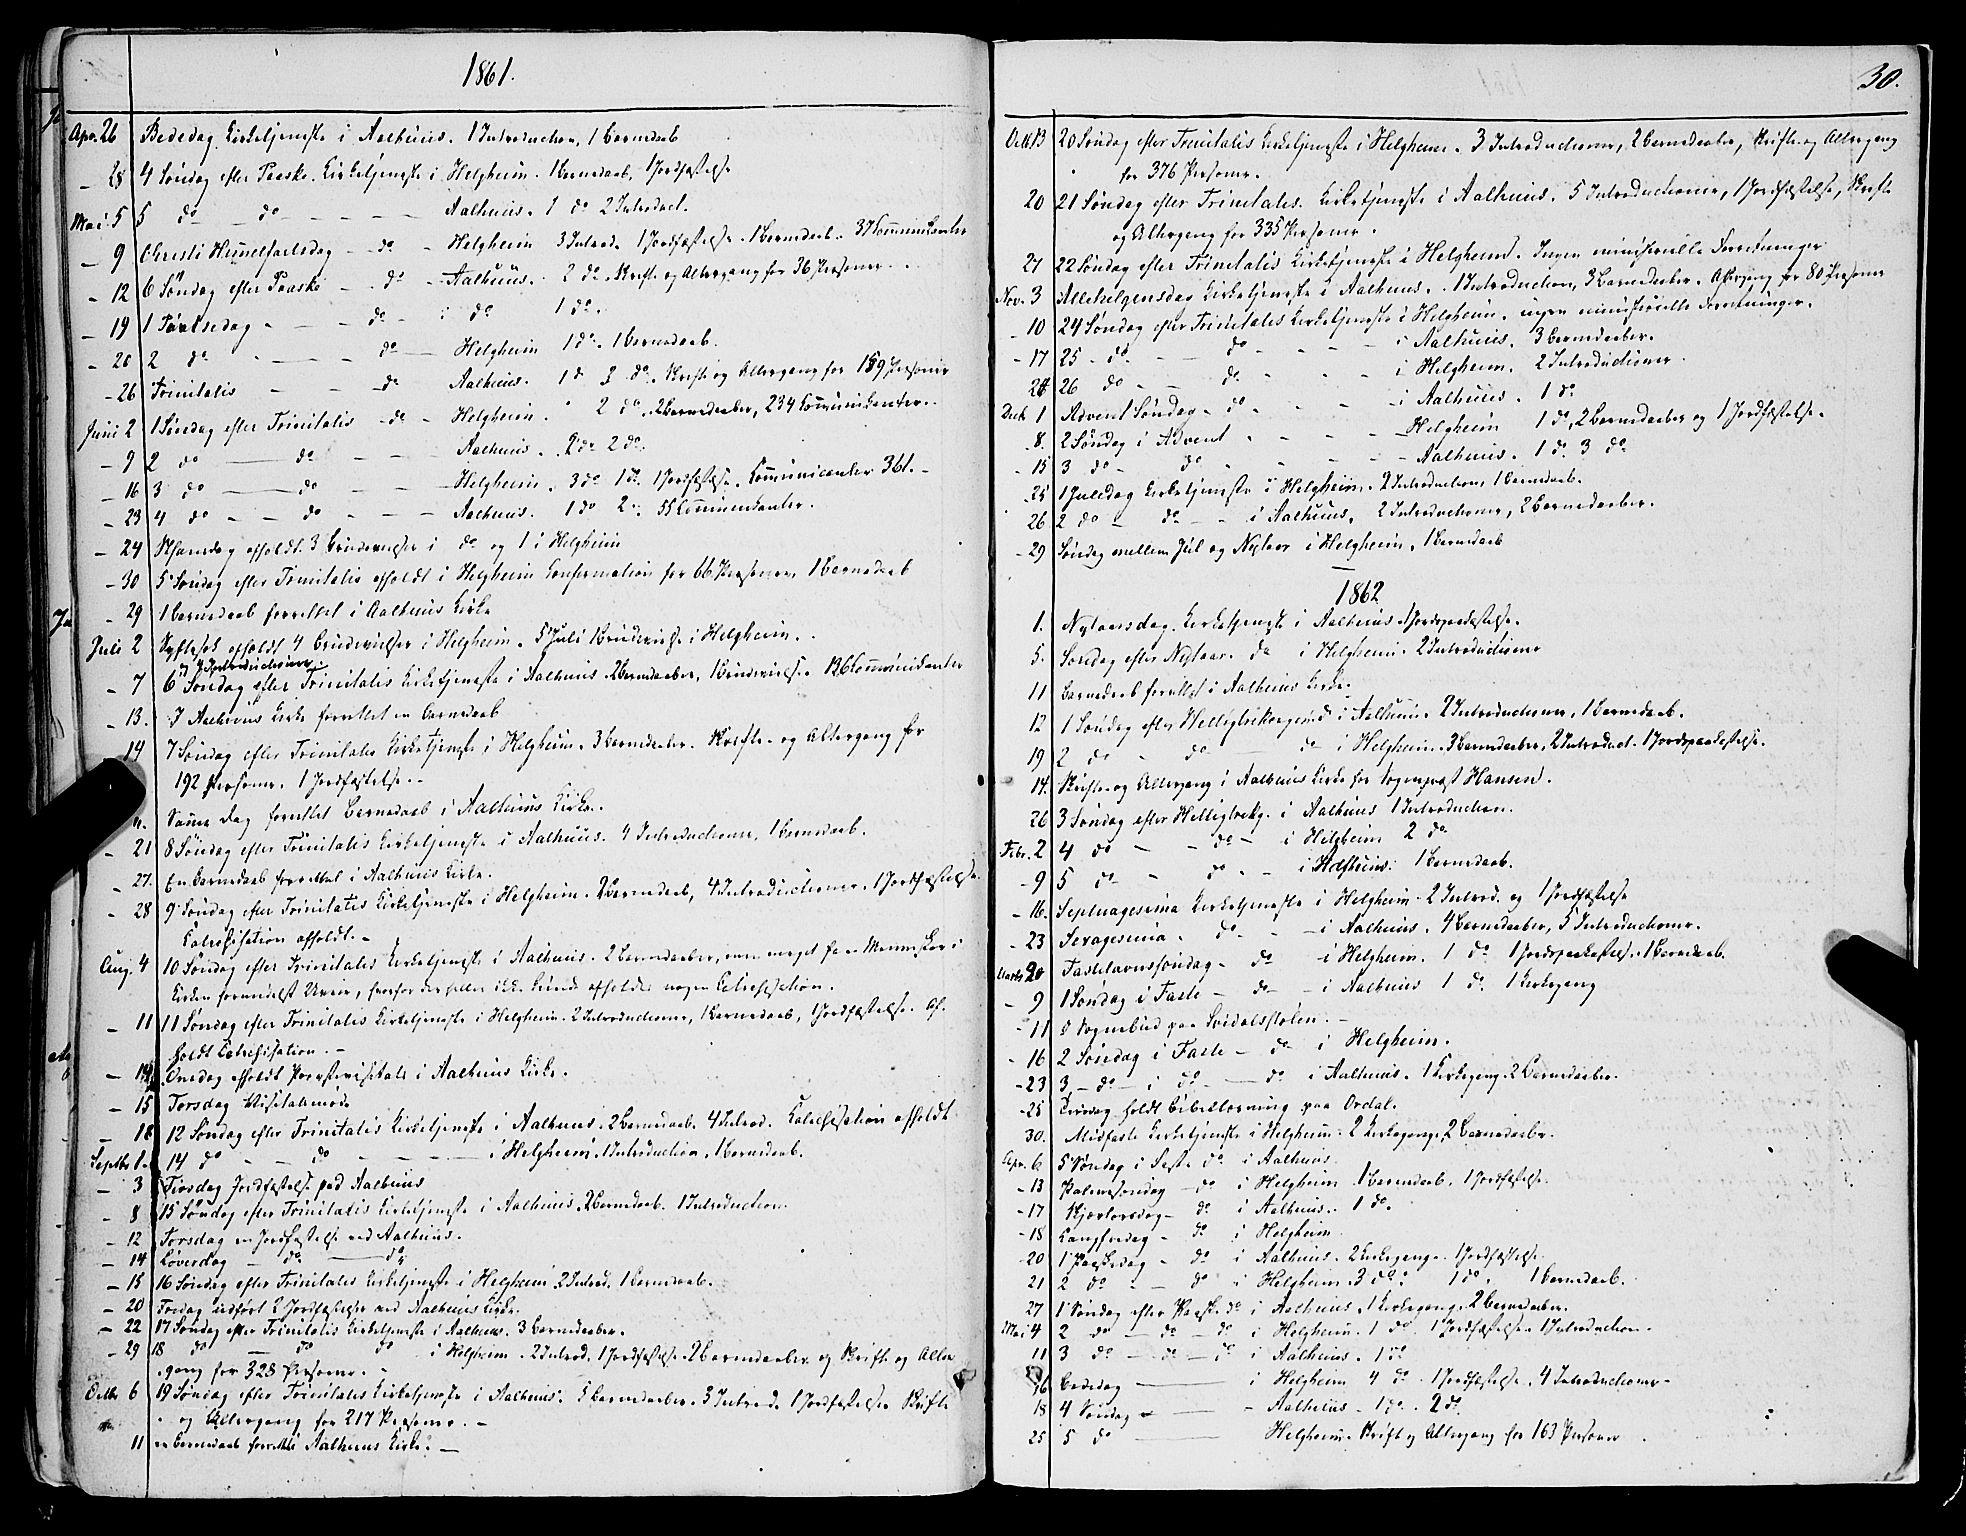 1861.
Apr. 26 Bededag. Kirketjeneste i Aalhuus. 1 Introduction, 1 Barnedaab
— 28 4 Søndag efter Paaske. Kirketjeneste i Helgheim. 1 Barnedaab, 1 Jordfæstelse
Mai. 5 5 do — do — — — — Aalhuus. 1 do 2 Introduct.
— 9 Christi Himmelfartsdag — do — Helgheim 3 Introd. 1 Jordfæstelse. 1 Barnedaab. 37 Communicanter
— 12 6 Søndag efter Paaske — do — Aalhuus. 2 do. Skrifte og Altergang for 36 Personer.
— 19 1 Pintsedag — — — do — i do 1 do.
— 20 2 do — — — do — Helgheim 1 do. 1 Barnedaab.
— 26 Trinitatis — — — do Aalhuus. 1 do 3 do. Skrifte og Altergang for 189 Personer
Juni 2 1 Søndag efter Trinitatis — do — Helgheim. 2 do. 2 Barnedaaber, 234 Communicanter.
— 9 2 do — do — — Aalhuus. 2 do 2 do.
— 16 3 do — do — — Helgheim. 3 do 1 do. 1 Jordfæstelse. Communicanter 361.
— 23 4 do — — do — — Aalhuus. 1 do 2 . 55 Communicanter.
— 24 St. Hansdag afholdt 3 Brudevielser i do og 1 i Helgheim
— 30 5 Søndag efter Trinitatis afholdt i Helgheim Confirmation for 66 Personer, 1 Barnedaab
— 29 1 Barnedaab forrettet i Aalhuus Kirke
Juli 2 Syftesok afholdt 4 Brudevielser i Helgheim. 5 Juli 1 Brudevielse i Helgheim.
7 Introductioner.
— 7 6 Søndag efter Trinitatis Kirketjeneste i Aalhuus. 2 Barnedaaber, 1 Brudevielse. 136 Communicanter
— 13. I Aalhuus Kirke forrettet en Barnedaab
14 7 Søndag efter Trinitatis Kirketjeneste i Helgheim. 3 Barnedaaber. Skrifte- og Altergang for
192 Personer. 1 Jordfæstelse.
". Samme Dag forrettet Barnedaab i Aalhuus Kirke.
— 21 8 Søndag efter Trinitatis Kirketjeneste i Aalhuus. 4 Introductioner, 1 Barnedaab.
— 27. En Barnedaab forrettet i Aalhuus Kirke.
— 28 9 Søndag efter Trinitatis Kirketjeneste i Helgheim. 2 Barnedaab, 4 Introductioner. 1 Jordfæstelse.
Catechisation afholdt.
Aug. 4 10 Søndag efter Trinitatis Kirketjeneste i Aalhuus. 2 Barnedaaber, men meget faa Mennesker i
Kirken formedelst Uveir, hvorfor der heller ikke kunde afholdes nogen Catechisation.
— 11 11 Søndag efter Trinitatis Kirketjeneste i Helgheim. 2 Introductioner, 1 Barnedaab, 1 Jordfæstelse. Af-
holdt Catechisation.
— 14 Onsdag afholdt Provstevisitats i Aalhuus Kirke.
— 15 Torsdag Visitatsmøde
— 18 12 Søndag efter Trinitatis Kirketjeneste i Aalhuus. 2 Barnedaab. 4 Introd. Catechisation afholdt
Septbr 1. 14 do — — do — — — i Helgheim. 1 Introduction, 1 Barnedaab.
— 3 Tirsdag Jordfæstelse ved Aalhuus
— 8 15 Søndag efter Trinitatis Kirketjeneste i Aalhuus. 2 Barnedaab. 1 Introduction
— 12 Torsdag en Jordfæstelse ved Aalhuus.
— 14 Løverdag — do — do
— 15 16 Søndag efter Trinitatis Kirketjeneste i Helgheim 2 Introd. 1 Barnedaab.
— 20 Fredag udført 2 Jordfæstelser ved Aalhuus Kirke.
— 22 17 Søndag efter Trinitatis Kirketjeneste i Aalhuus. 3 Barnedaaber.
— 29 18 do — do do — i Helgheim. 2 Introd. 1 Jordfæstelse. 2 Barnedaaber og Skrift- og Alter
gang for 328 Personer.
Octbr 6 19 Søndag efter Trinitatis Kirketjeneste i Aalhuus. 5 Barnedaaber. 3 Introd. 1 Jordfæstelse Skrifte
og Altergang for 217 Personer.
11 en Barnedaab forrettet i Aalhuus Kirke.
30.
Oct. 13 20 Søndag efter Trinitatis Kirketjeneste i Helgheim. 3 Introductioner, 2 Barnedaaber, Skrifte- og Altergang
for 376 Personer.
20 21 Søndag efter Trinitatis. Kirketjeneste i Aalhuus. 5 Introductioner, 1 Jordfæstelse, Skrifte
og Altergang for 335 Personer.
27 22 Søndag efter Trinitatis Kirketjeneste i Helgheim. Ingen ministerielle Forretninger
Nov. 3 Allehelgensdag Kirketjeneste i Aalhuus. 1 Introduction, 3 Barnedaaber. Altergang for 80 Personer
— 10 24 Søndag efter Trinitatis Kirketjeneste i Helgheim. ingen ministerielle Forretninger.
— 17 25 do — do — — i Aalhuus. 3 Barnedaaber.
24 26 do — do — — i Helgheim. 2 Introductioner
Decb. 1 Advent Søndag — do — — i Aalhuus. 1 do
8. 2 Søndag i Advent — — — Helgheim 1 do, 2 Barnedaaber og 1 Jordfæstelse.
— 15 3 do — do — — Aalhuus. 1 do. 3 do
— 25 1 Juledag Kirketjeneste i Helgheim. 2 Introduction, 1 Barnedaab.
26 2 do — do — — i Aalhuus. 2 Introductioner, 2 Barnedaaber.
— 29 Søndag mellem Jul og Nytaar i Helgheim. 1 Barnedaab
1862
1. Nytaarsdag. Kirketjeneste i Aalhuus. 1 Jordspaakastelse.
5. Søndag efter Nytaar. do i Helgheim. 2 Introductioner
11 Barnedaab forrettet i Aalhuus Kirke.
12 1 Søndag efter Helligtrekongersd. i Aalhuus. 2 Introductioner, 1 Barnedaab.
19 2 do — do — do i Helgheim. 3 Barnedaaber, 2 Introduct. 1 Jordspaakastelse.
14. Skrifte- og Altergang i Aalhuus Kirke for Sognepræst Hansen.
26 3 Søndag efter Helligtrekg. i Aalhuus 1 Introduction.
Febr. 2 4 do — — do — i Helgheim 2 do
— 9 5 do — do — — i Aalhuus. 1 Barnedaab.
— 16. Septuagesima Kirketjeneste i Helgheim. 2 Introd. og 1 Jordfæstelse
— 23 Sexagesima. do — — i Aalhuus. 4 Barnedaaber, 5 Introductioner.
Marts 2 Fastelavnssøndag — do — i Helgheim. 1 do 1 Jordspaakastelse. 1 Barnedaab.
— 9 1 Søndag i Faste — do — i Aalhuus 1 do. 1 Kirkegang
— 11 Sognebud paa
— 16 2 Søndag i Faste — do i Helgheim.
— 23 3 — do — i do — — do i Aalhuus. 1 Kirkegang. 2 Barnedaaber.
— 25 Tirsdag holdt Bibellæsning paa Ordal.
30. Midfaste Kirketjeneste i Helgheim. 2 Kirkegang. 2 Barnedaaber.
Apr. 6 5 Søndag i Faste do i Aalhuus.
— 13 Palmesøndag — do i Helgheim. 1 Barnedaab. 1 Jordfæstelse.
— 17 Skjærtorsdag — do i Aalhuus. 1 do.
— 18 Langfredag — do i Helgheim
— 20 1 Paaskedag — do i Aalhuus. 2 Kirkegang. 1 Jordfæstelse.
21 2 do — — do i Helgheim. 3 do. 1 do. 1 Barnedaab.
27 1 Søndag efter Paaske do i Aalhuus. 1 Kirkegang. 2 Barnedaaber.
Mai 4 2 do — do — do i Helgheim. 1 do. 1 Jordfæstelse 1 Introduction
11 3 do — do — do i Aalhuus. 1 do
16 Bededag — i Helgheim 4 do. 1 Jordfæstelse. 4 Introductioner
18 4 Søndag — — Aalhuus. 1 do. 2 do.
25 5 do — Helgheim. Skrift og Altergang for 163 Personer